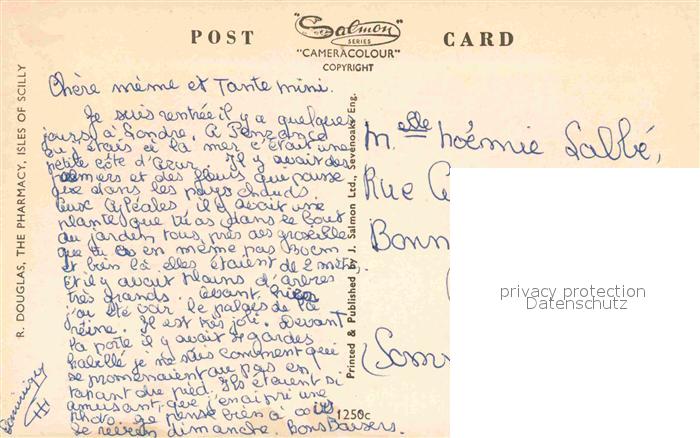 POST CARD
"Salmon"
SERIES
"CAMERACOLOUR"
COPYRIGHT
R. DOUGLAS, THE PHARMACY, ISLES OF SCILLY
Chère mème et Tante mini.
Je suis rentrée il y a quelques
jours à Londre. A Penzance
où j'étais à la mer c'était une
petite côte d'Azur. Il y avait des
palmiers et des fleurs qui pousse
que dans les pays chauds
il y avait une
plante que tu as dans le bout
du jardin, tous près des groseilles
que tu as en même pas 80cm
et bien là elles étaient de 2 mètres,
et il y avait pleins d'arbres
très grands. Avant hier
j'ai été voir le palais de la
reine. Il est très joli. Devant
la porte il y avait 2 gardes
habillé je ne sais comment qui
se promenaient au pas en
tapant du pied. Ils étaient si
amusant, que j'en ai pri une
photo. Je pense bien à
Je reviens dimanche. Bons Baisers.
Dominique
Printed & Published by J. Salmon Ltd., Sevenoaks, Eng.
1250c
Melle Noémie Labbé,
Rue
Bonn
(Somm
privacy protection
Datenschutz